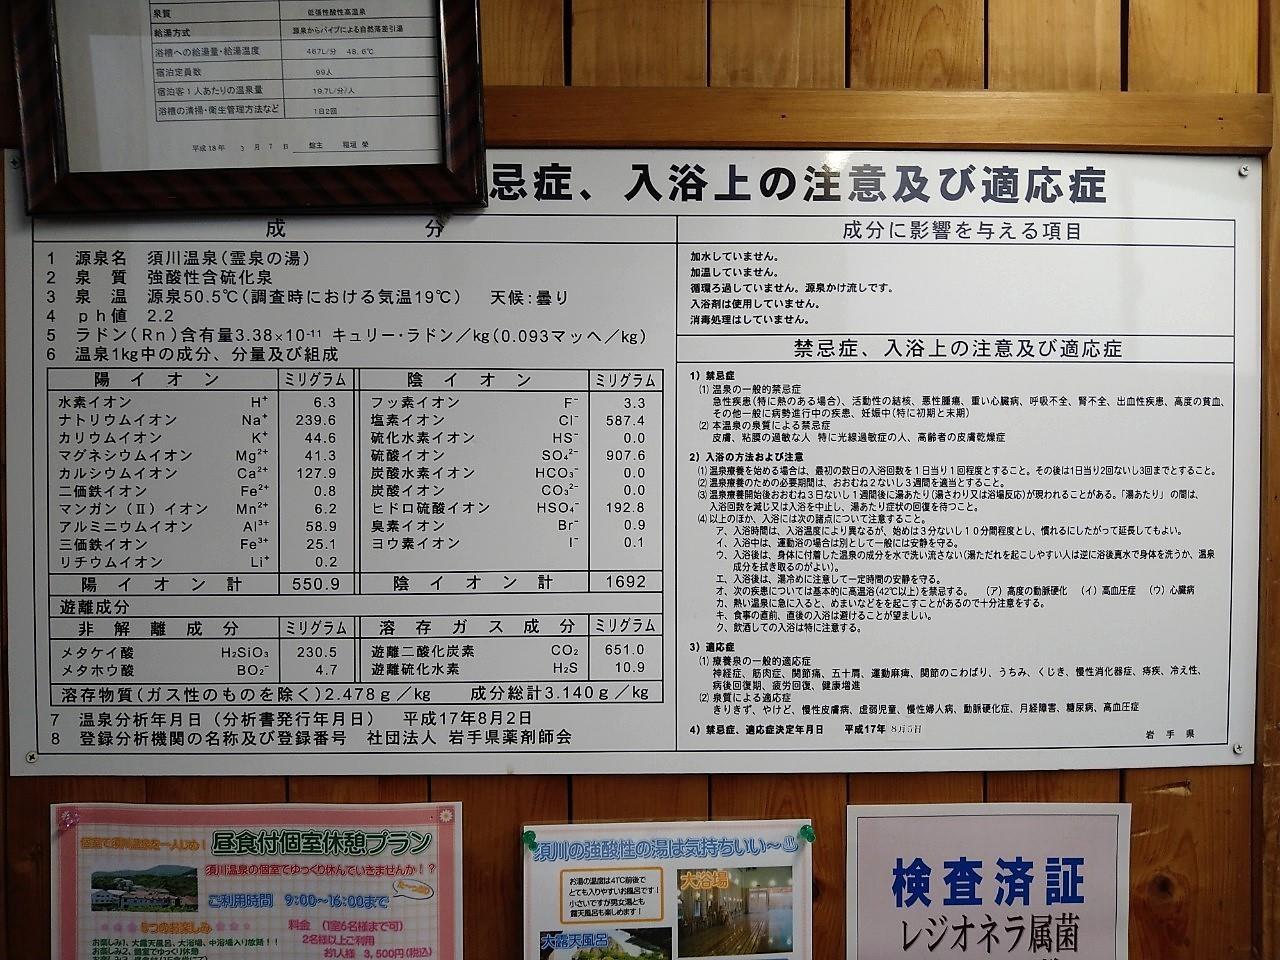 泉質 低張性酸性高温泉
給湯方式 源泉からパイプによる自然落差引湯
浴槽への給湯量・給湯温度 467L/分 48.6℃
宿泊定員数 99人
宿泊客1人あたりの温泉量 19.7L/分/人
浴槽の清掃・衛生管理方法など 1日2回
平成18年 3月7日 館主 稲垣 榮
忌症、入浴上の注意及び適応症
成分
1 源泉名 須川温泉(霊泉の湯)
2 泉質 強酸性含硫化泉
3 泉温 源泉50.5℃(調査時における気温19℃) 天候:曇り
4 ph値 2.2
5 ラドン(Rn)含有量3.38×10⁻¹¹ キュリー・ラドン/kg(0.093マッヘ/kg)
6 温泉1kg中の成分、分量及び組成
陽イオン ミリグラム 陰イオン ミリグラム
水素イオン H⁺ 6.3 フッ素イオン F⁻ 3.3
ナトリウムイオン Na⁺ 239.6 塩素イオン Cl⁻ 587.4
カリウムイオン K⁺ 44.6 硫化水素イオン HS⁻ 0.0
マグネシウムイオン Mg²⁺ 41.3 硫酸イオン SO₄²⁻ 907.6
カルシウムイオン Ca²⁺ 127.9 炭酸水素イオン HCO₃⁻ 0.0
二価鉄イオン Fe²⁺ 0.8 炭酸イオン CO₃²⁻ 0.0
マンガン(Ⅱ)イオン Mn²⁺ 6.2 ヒドロ硫酸イオン HSO₄⁻ 192.8
アルミニウムイオン Al³⁺ 58.9 臭素イオン Br⁻ 0.9
三価鉄イオン Fe³⁺ 25.1 ヨウ素イオン I⁻ 0.1
リチウムイオン Li⁺ 0.2
陽イオン計 550.9 陰イオン計 1692
遊離成分
非解離成分 ミリグラム 溶存ガス成分 ミリグラム
メタケイ酸 H₂SiO₃ 230.5 遊離二酸化炭素 CO₂ 651.0
メタホウ酸 BO₂⁻ 4.7 遊離硫化水素 H₂S 10.9
溶存物質(ガス性のものを除く)2.478g/kg 成分総計3.140g/kg
7 温泉分析年月日(分析書発行年月日) 平成17年8月2日
8 登録分析機関の名称及び登録番号 社団法人 岩手県薬剤師会
成分に影響を与える項目
加水していません。
加温していません。
循環ろ過していません。源泉かけ流しです。
入浴剤は使用していません。
消毒処理はしていません。
禁忌症、入浴上の注意及び適応症
1)禁忌症
(1)温泉の一般的禁忌症
急性疾患(特に熱のある場合)、活動性の結核、悪性腫瘍、重い心臓病、呼吸不全、腎不全、出血性疾患、高度の貧血、
その他一般に病勢進行中の疾患、妊娠中(特に初期と末期)
(2)本温泉の泉質による禁忌症
皮膚、粘膜の過敏な人 特に光線過敏症の人、高齢者の皮膚乾燥症
2)入浴の方法および注意
(1)温泉療養を始める場合は、最初の数日の入浴回数を1日当り1回程度とすること。その後は1日当り2回ないし3回までとすること。
(2)温泉療養のための必要期間は、おおむね2ないし3週間を適当とすること。
(3)温泉療養開始後おおむね3日ないし1週間後に湯あたり(湯さわり又は浴場反応)が現われることがある。「湯あたり」の間は、
入浴回数を減じ又は入浴を中止し、湯あたり症状の回復を待つこと。
(4)以上のほか、入浴には次の諸点について注意すること。
ア、入浴時間は、入浴温度により異なるが、始めは3分ないし10分間程度とし、慣れるにしたがって延長してもよい。
イ、入浴中は、運動浴の場合は別として一般には安静を守る。
ウ、入浴後は、身体に付着した温泉の成分を水で洗い流さない(湯ただれを起こしやすい人は逆に浴後真水で身体を洗うか、温泉
成分を拭き取るのがよい)。
エ、入浴後は、湯冷めに注意して一定時間の安静を守る。
オ、次の疾患については基本的に高温浴(42℃以上)を禁忌する。 (ア)高度の動脈硬化 (イ)高血圧症 (ウ)心臓病
カ、熱い温泉に急に入ると、めまいなどをを起こすことがあるので十分注意をする。
キ、食事の直前、直後の入浴は避けることが望ましい。
ク、飲酒しての入浴は特に注意する。
3)適応症
(1)療養泉の一般的適応症
神経症、筋肉症、関節痛、五十肩、運動麻痺、関節のこわばり、うちみ、くじき、慢性消化器症、痔疾、冷え性、
病後回復期、疲労回復、健康増進
(2)泉質による適応症
きりきず、やけど、慢性皮膚病、虚弱児童、慢性婦人病、動脈硬化症、月経障害、糖尿病、高血圧症
4)禁忌症、適応症決定年月日 平成17年8月5日
岩手県
個室で須川温泉を一人じめ!
昼食付個室休憩プラン
須川温泉の個室でゆっくり休んでいきませんか!?
た〜っぷり
ご利用時間 9:00〜16:00まで
5つのお楽しみ
料金 (1室6名様まで可)
お楽しみ1、大露天風呂、大浴場、中浴場入り放題!!
2名様以上ご利用
お楽しみ2、個室でゆっくり休憩
お1人様 3,500円(税込)
須川の強酸性の湯は気持ちいい〜♨
お湯の温度は41℃前後で
とても入りやすいお風呂です!
小さいですが男女湯とも
露天風呂も楽しめます!
大浴場
大露天風呂
検査済証
レジオネラ属菌